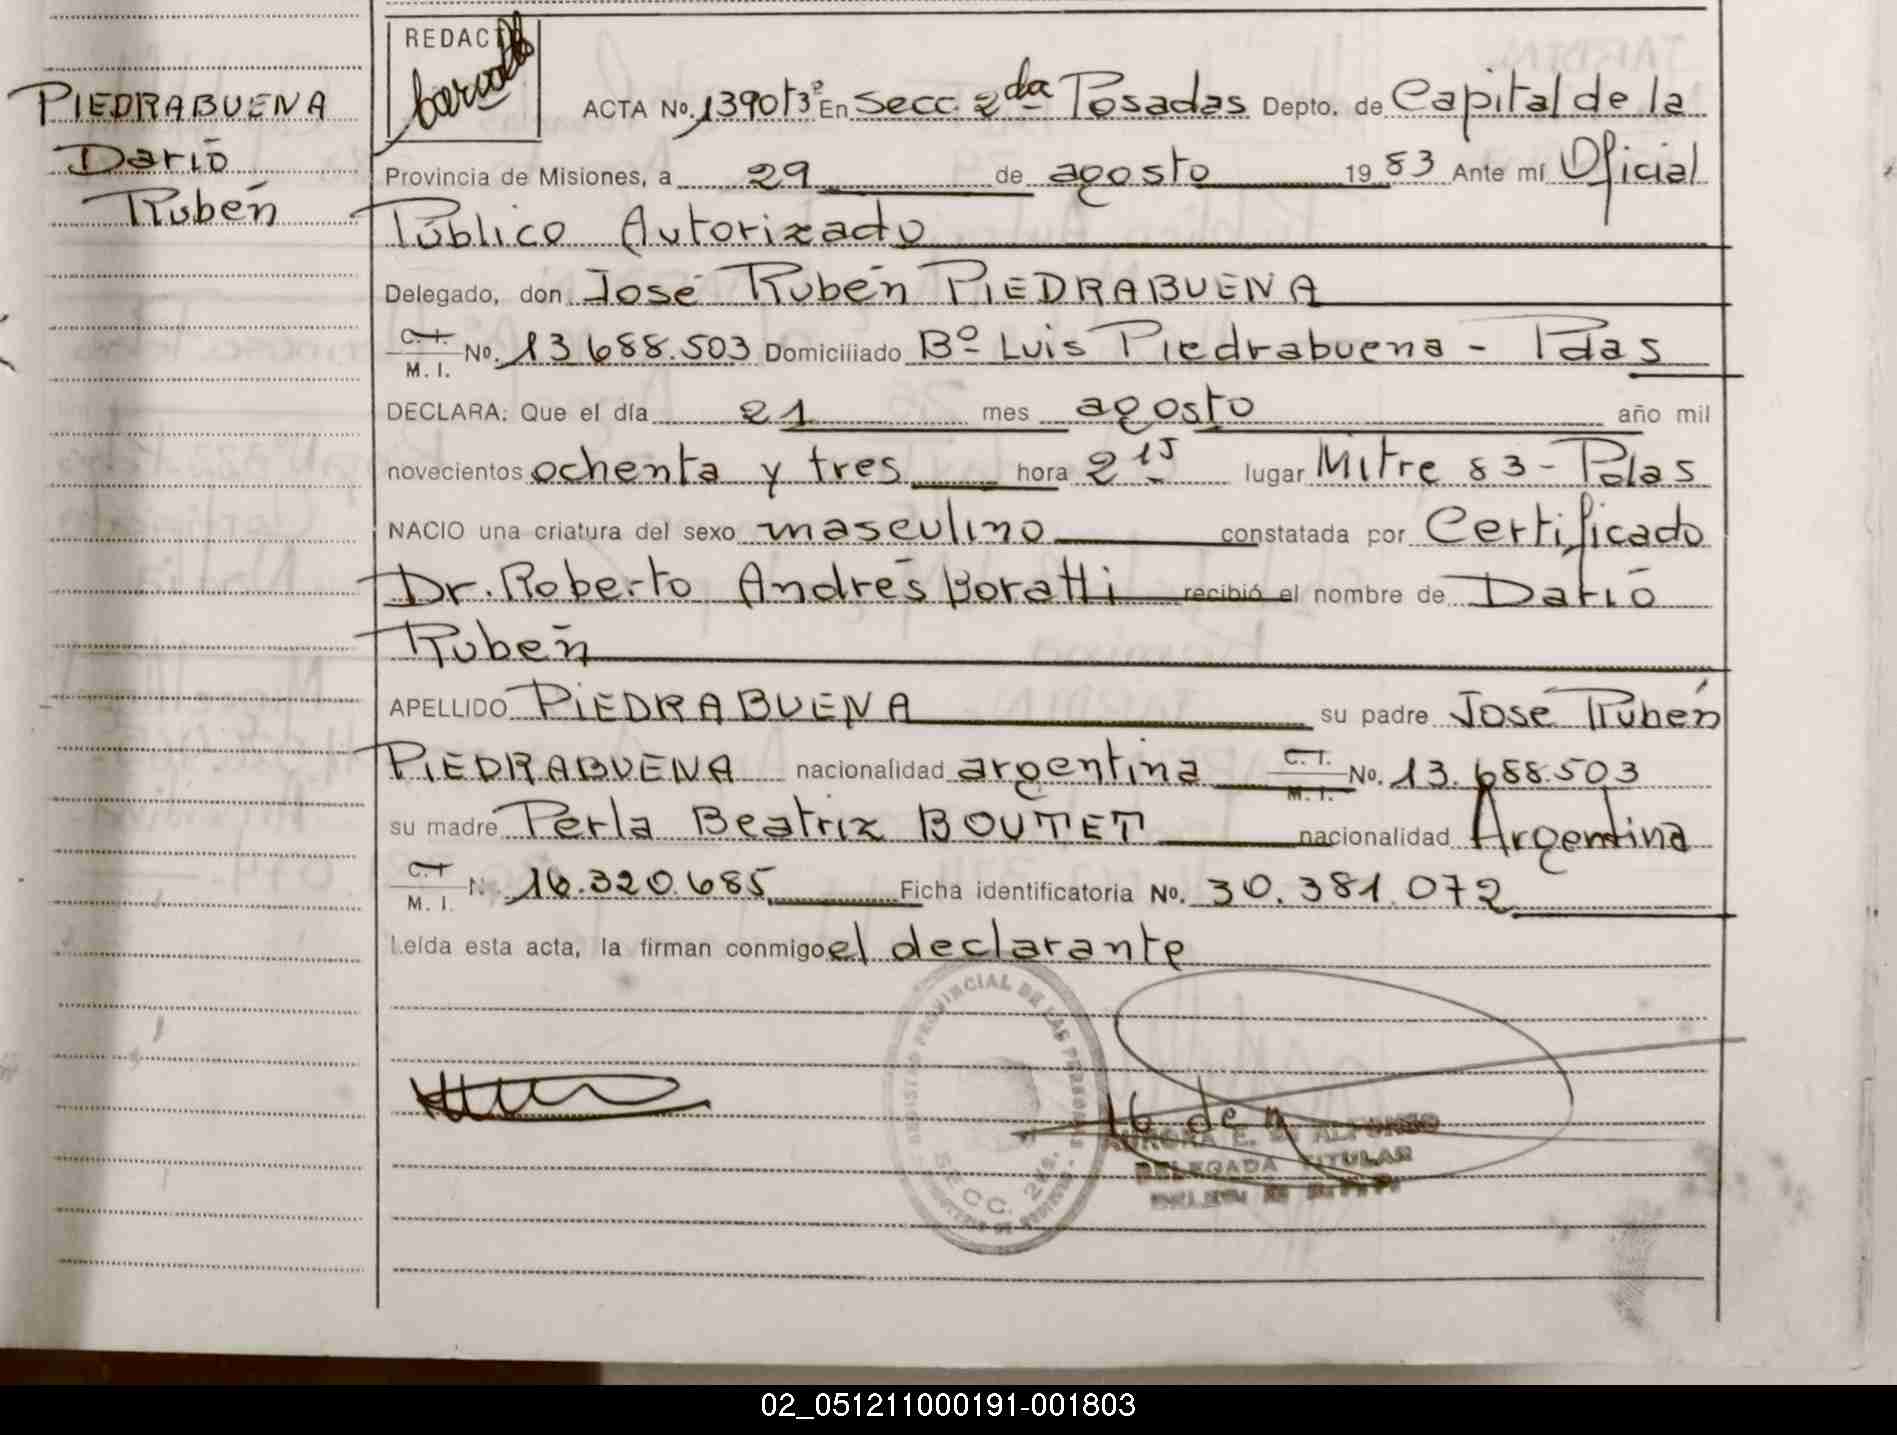 PIEDRABUENA
Darió
Rubén
REDACTÓ
ACTA Nº. 1390 t3º En Secc. 2da Posadas Depto. de Capital de la
Provincia de Misiones, a 29 de agosto 1983 Ante mí Oficial
Público Autorizado
Delegado, don José Rubén PIEDRABUENA
C.I. M.I. Nº. 13.688.503 Domiciliado Bº Luis Piedrabuena - Pdas
DECLARA: Que el día 21 mes agosto año mil
novecientos ochenta y tres hora 2 15 lugar Mitre 83 - Pdas
NACIO una criatura del sexo masculino constatada por Certificado
Dr. Roberto Andrés Boratti recibió el nombre de Darió
Rubén
APELLIDO PIEDRABUENA su padre José Rubén
PIEDRABUENA nacionalidad argentina C.I. M.I. Nº. 13.688.503
su madre Perla Beatrix BOUTET nacionalidad Argentina
C.I. M.I. N. 16.320.685 Ficha identificatoria Nº. 30.381.072
Leída esta acta, la firman conmigo el declarante
REGISTRO PROVINCIAL DE LAS PERSONAS
SECC. 2da.
AURORA E. DI ALFONSO
DELEGADA TITULAR
02_051211000191-001803